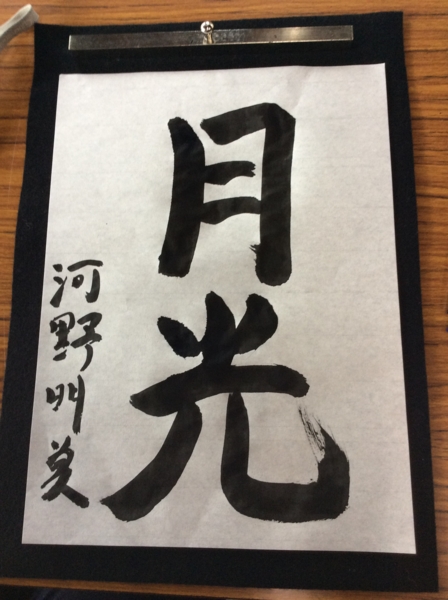 月光
河野明美